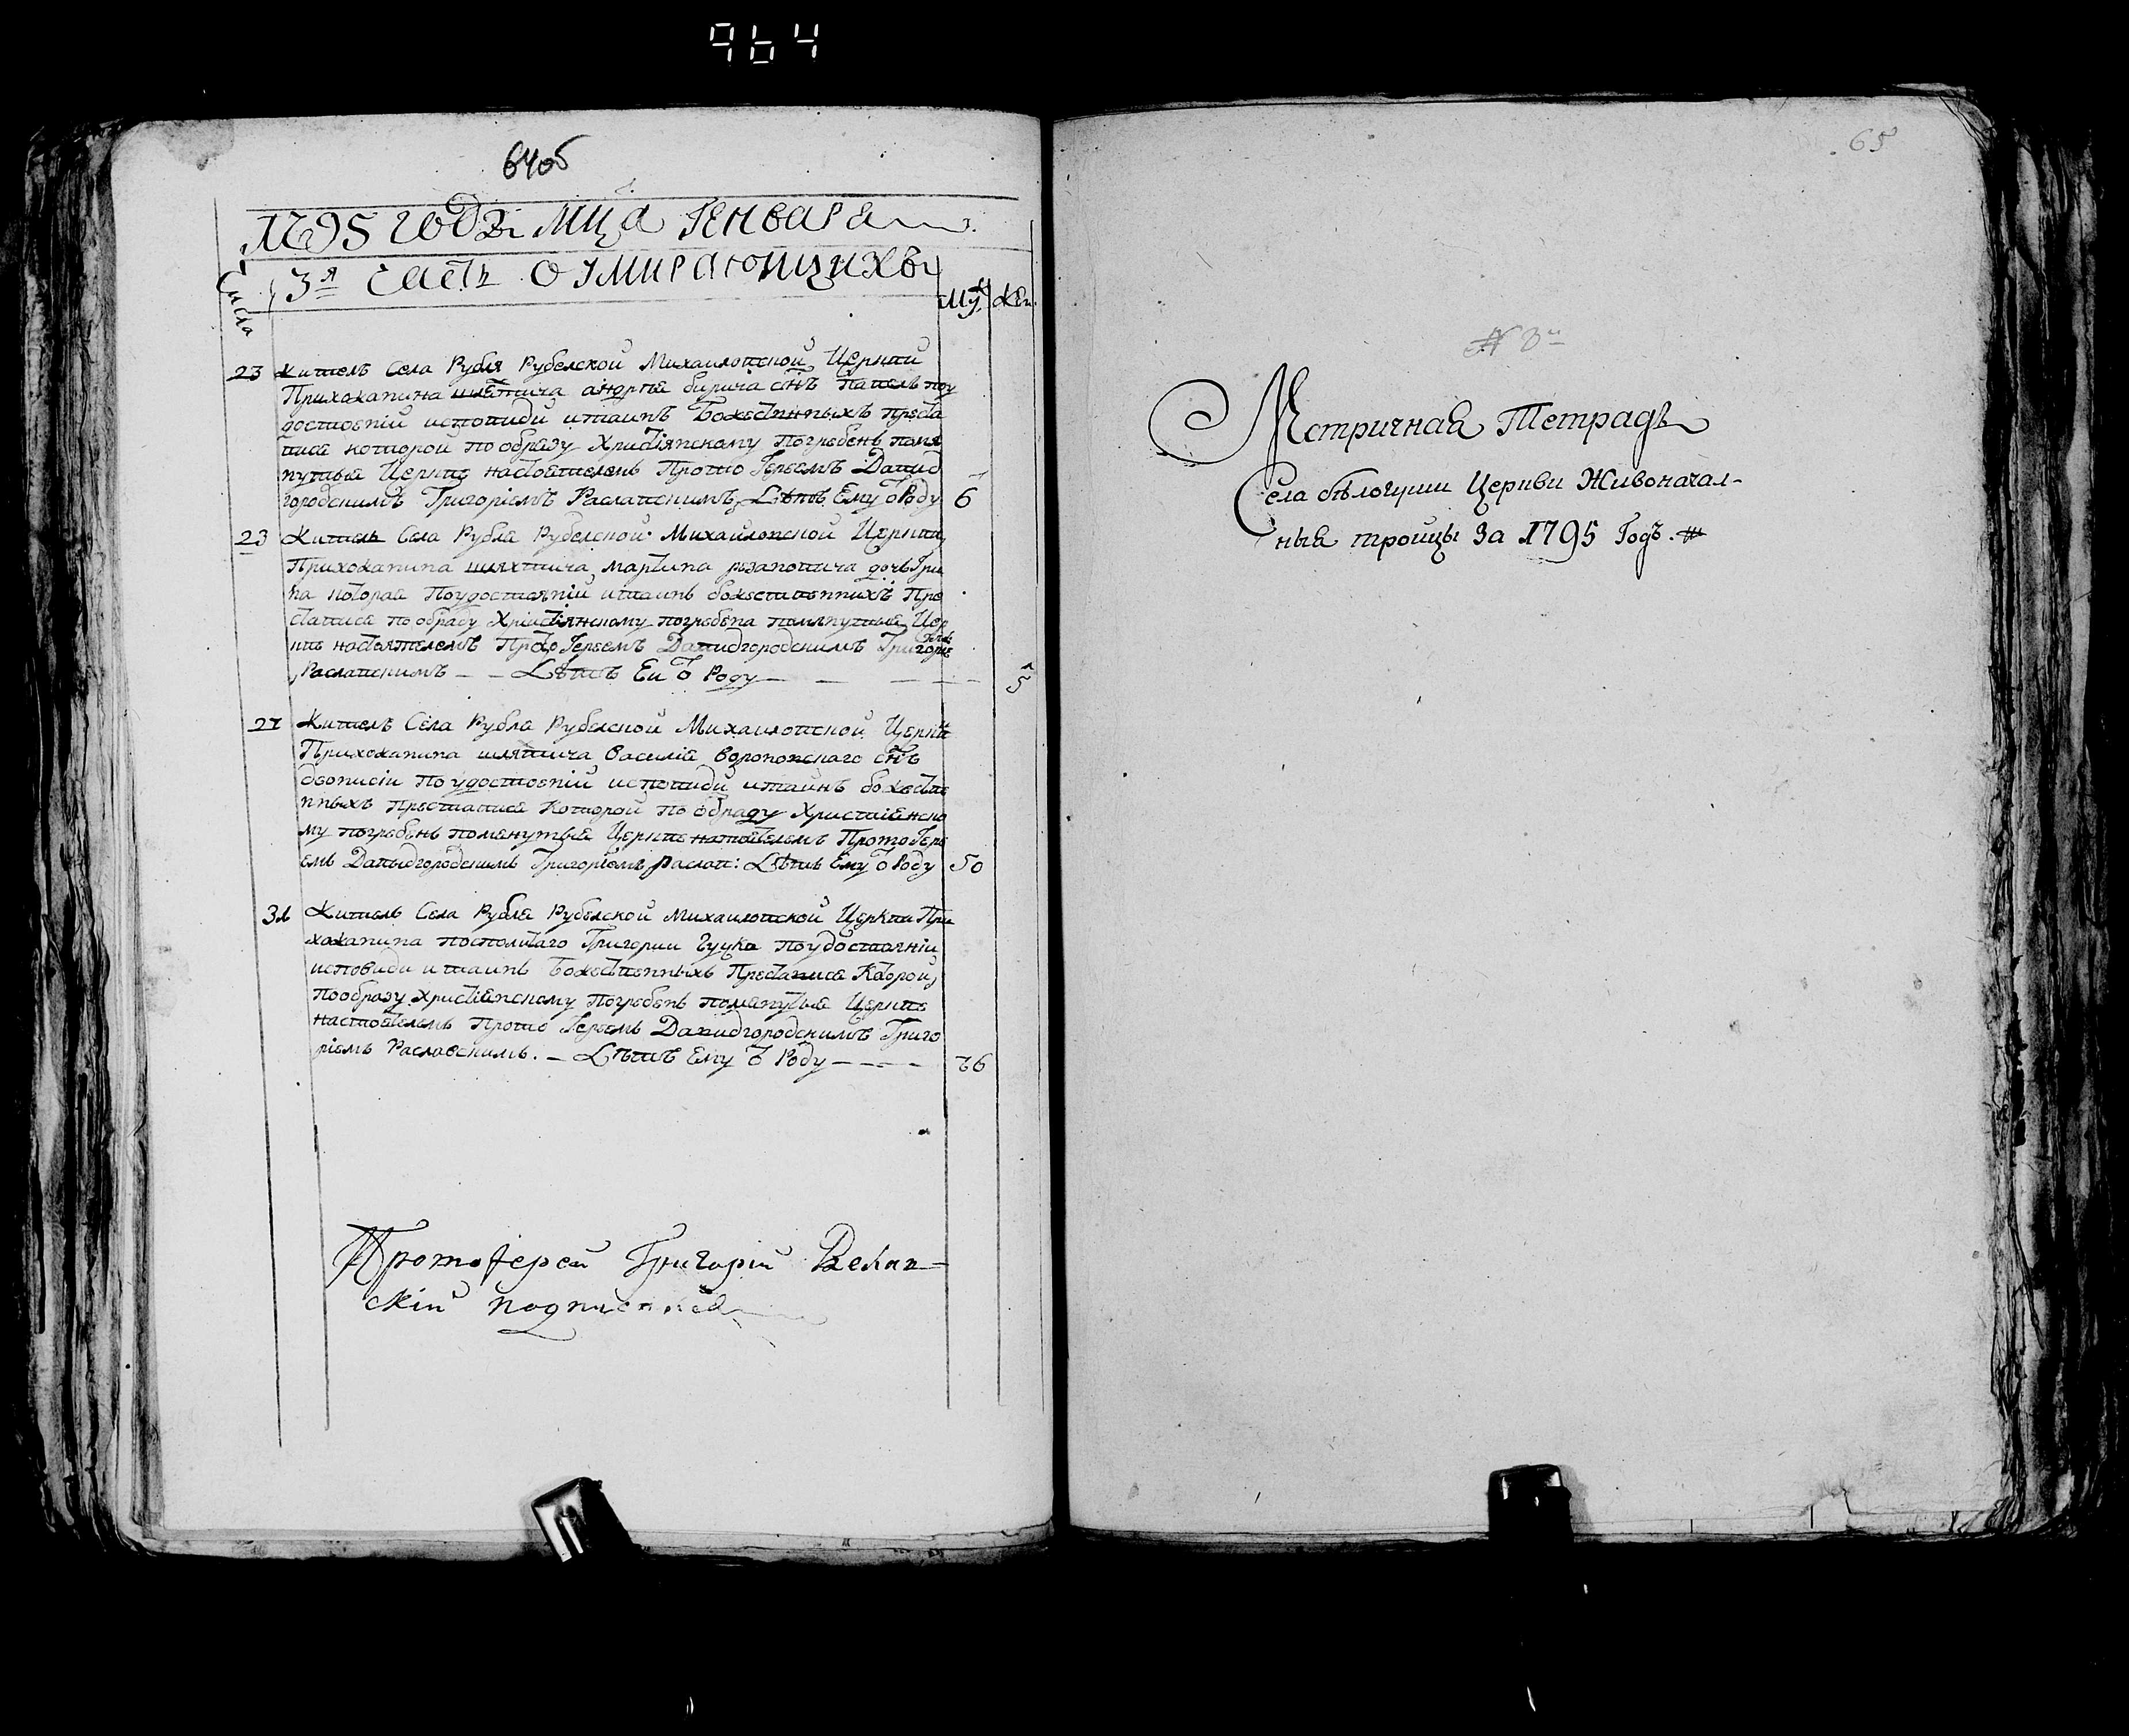 964
64об
1795 годъ мца Генваря
Числа
3я часть О умирающихъ
муж. жен.
23 Житель Села Рубля Рубелской Михаиловской Церкви
Прихожанина шляхтича андрѣя бирича снъ Павелъ по у
достоеніи исповиди итаинъ Божественныхъ преста
вися которой по образу Христіянскому погребенъ помя
нутыя Церкве настоятелемъ Прото Іереемъ Давид
городскимъ Григоріемъ Раславскимъ Лѣтъ Ему ѿ Роду 6
23 Житель Села Рубля Рубелской Михайловской Церкви
Прихожанина шляхтича Мартина дочь
на которая По удостоянїи итаинъ божественнихъ Пре
ставися по образу Христіянскому погребена помянутыя Цер
кве настоятелемъ Прото Іереемъ Давидгородскимъ Григорие
Раславскимъ — — Лѣтъ Еи ѿ Роду — 5
27 Житель Села Рубля Рубелской Михаиловской Церкви
Прихожанина шляхтича Василія Вороновского снъ
Деонисіи По удостоенїй исповиди итаинъ божестве
нныхъ Преставися Которой по образу Христіянско
му погребенъ поменутыя Церкве настоятелемъ ПротоІере
емъ Давыдгородскимъ Григоріемъ Раслав: Лѣтъ Ему ѿ Роду 50
31 Житель Села Рубля Рубелской Михаиловской Церкви При
хожанина посполитаго Григории Гуцка по удостоянїи
исповиди итаинъ Божественныхъ Преставися Которой
По образу христіянскому погребенъ помянутыя Церкве
настоятелемъ Прото Іереемъ Давидгородскимъ Григо
ріемъ Раславскимъ. — Лѣтъ Ему ѿ Роду — — — 76
ПротоІерей Григорій Велав-
скій подписався
65
Метричная Тетрадь
Села бѣлогуши Церкви Живоначал-
ныя троицы За 1795 Годъ.